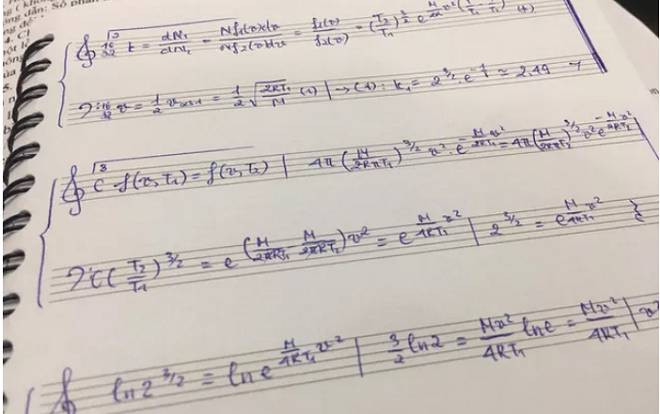 √3
16/32 k = dN₁/dN₂ = Nf₁(v)dv/Nf₂(v)dv = f₁(v)/f₂(v) = (T₂/T₁)^(3/2) e^(M/2R v²(1/T₂ - 1/T₁)) (*)
16/32 v = 1/2 v = 1/2 √(2RT₁/M) (1) | → (*): k₁ = 2^(3/2) · e^(-1/8) ≈ 2.49
√3
C f(v,T₁) = f(v,T₂) | 4π(M/2RπT₁)^(3/2) v² · e^(-M/2RT₁ v²) = 4π(M/2RπT₂)^(3/2) v² e^(-M/2RT₂ v²)
C (T₂/T₁)^(3/2) = e^((M/2RT₁ - M/2RT₂)v²) = e^(M/4RT₁ v²) | 2^(3/2) = e^(M/4RT₁ v²)
ln2^(3/2) = ln e^(M/4RT₁ v²) | 3/2 ln2 = Mv²/4RT₁ lne = Mv²/4RT₁ | v²